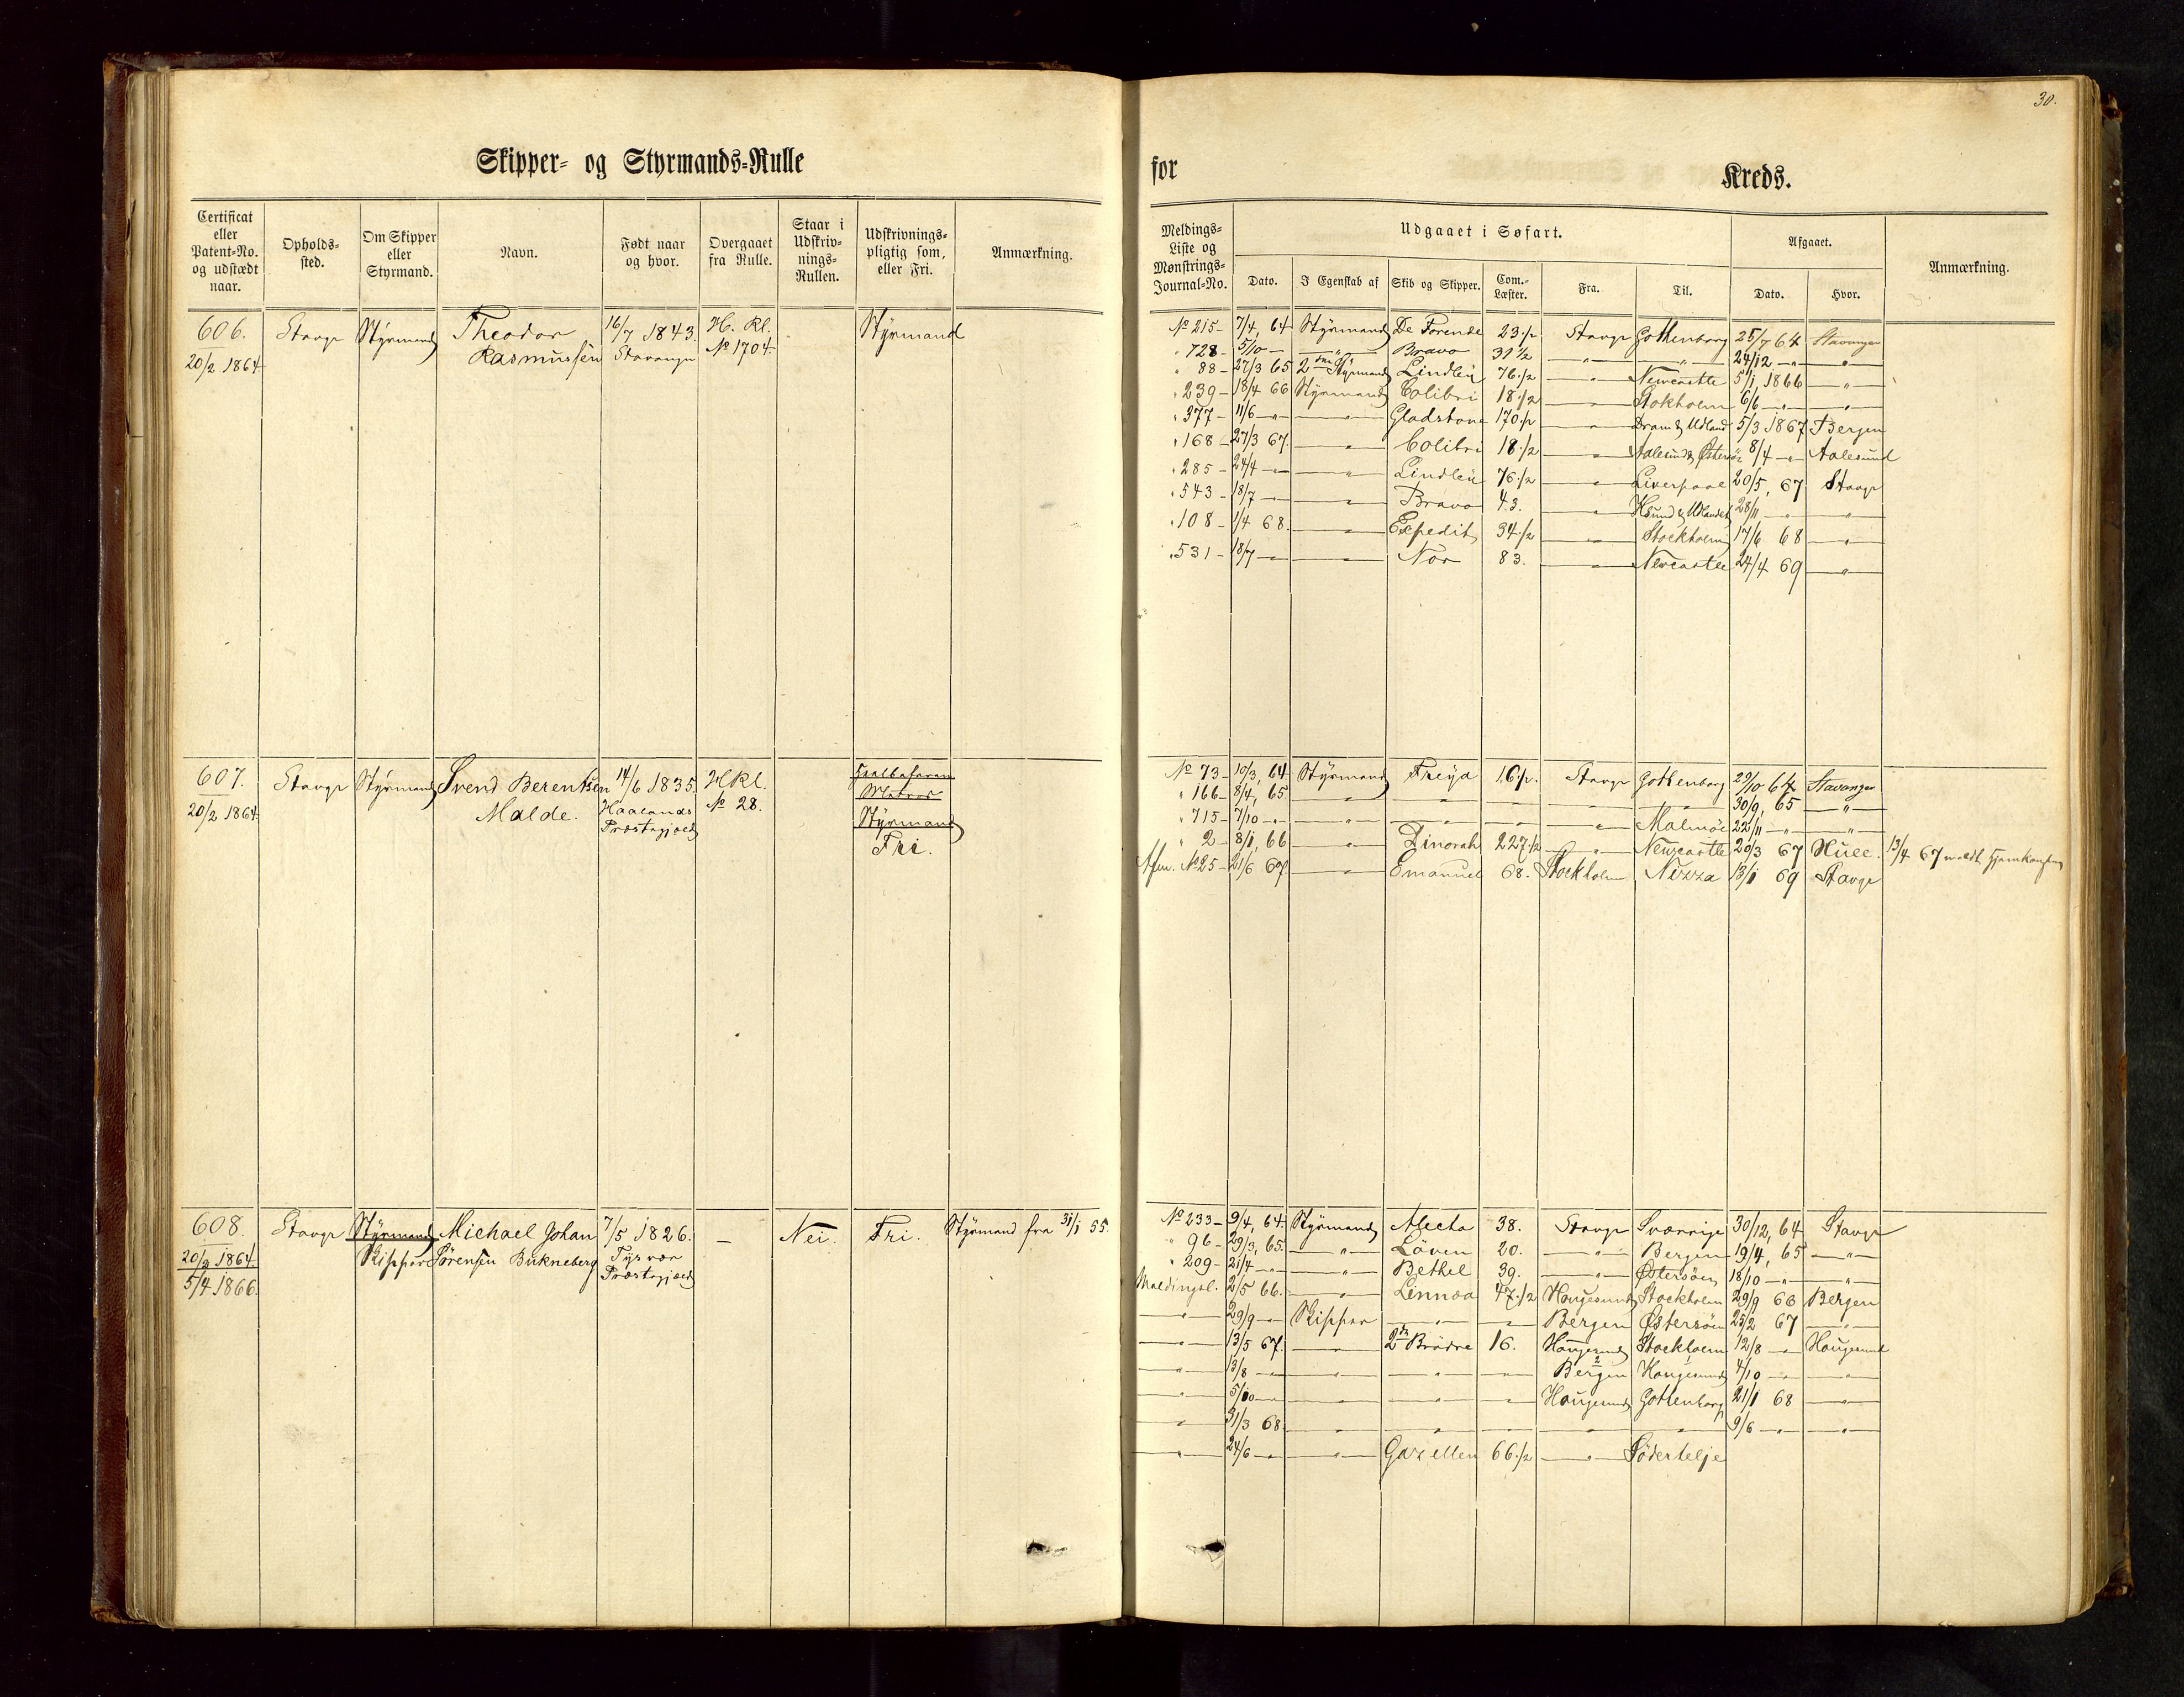 30.
Skipper- og Styrmands-Rulle
for Kreds.
Certificat eller Patent-No. og udstædt naar.
Opholds-sted.
Om Skipper eller Styrmand.
Navn.
Født naar og hvor.
Overgaaet fra Rulle.
Staar i Udskriv-nings-Rullen.
Udskrivnings-pligtig som, eller Fri.
Anmærkning.
Meldings-Liste og Mønstrings-Journal-No.
Udgaaet i Søfart.
Dato.
I Egenskab af
Skib og Skipper.
Com.-Læster.
Fra.
Til.
Afgaaet.
Dato.
Hvor.
Anmærkning.
606. Stavgr Styrmand Theodor 16/7 1843. H. Rl. Styrmand
20/2 1864 Rasmussen Stavanger № 1704.
№ 215 - 7/4, 64 Styrmand De Forende 23 1/2 Stavgr Gothenborg 25/7 64 Stavanger
" 728 - 5/10 - " Bravo 31 1/2 " " 24/12 - " "
" 88 - 27/3 65 2den Styrmand Lindley 76 1/2 " Newcastle 5/1, 1866 "
" 239 - 18/4 66 Styrmand Colibri 18 1/2 " Stokholm 6/6 - " "
" 377 - 11/6 - " " Gladstone 170 1/2 " Dram & Udland 5/3 1867 Bergen
" 168 - 27/3 67. " Colibri 18 1/2 " Aalesund & Østersö 8/4 - " Aalesund
" 285 - 24/4 - " " Lindley 76 1/2 " Liverpool 20/5, 67 Stavgr
" 543 - 18/7 - " " Bravo 43. " Hsund & Udlandet 28/11 - " "
" 108 - 1/4 68. " Expedit 34 1/2 " Stockholm 17/6 68 "
" 531 - 18/7 - " " Nor 83. " Newcastle 24/4 69 "
607. Stavgr Styrmand Svend Berentsen 14/6 1835. HRl.
20/2 1864. Malde. Haalands № 28. Matros
Præstegjæld Styrmand
Fri.
№ 73 - 10/3, 64 Styrmand Freya 16 1/2. Stavgr Gothenborg 29/10 64 Stavanger
" 166 - 8/4, 65 " " " " 30/9, 65 "
" 715 - 7/10 - " " " " Malmöe 22/11 - " "
" 2 - 8/1, 66 " Dinorah 227 1/2 " Newcastle 20/3 67 Hull. 13/4 67 meldt Hjemkomsten
№ 25 - 21/6 69 " Emanuel 68. Stockholm Nizza 13/1 69 Stavgr
608. Stavgr Styrmand Michael Johan 7/5 1826. — Nei. Fri. Styrmand fra 31/1 55.
20/2 1864. Skipper Sörensen Bukneberg Tysvær
5/4 1866. Præstegjæld
№ 233 - 9/4, 64. Styrmand Alecta 38. Stavgr Sverrige 30/12, 64 Stavgr
" 96 - 29/3, 65. " Löven 20. " Bergen 19/4, 65 "
" 209 - 21/4 - " " Bethel 39. " Østersöen 18/10 - " "
Meldingsl. 2/5 66. " Linnea 47 1/2 Haugesund Stockholm 29/9 66 Bergen
" 29/9 - " Skipper " " Bergen Østersöen 25/2 67 "
" 13/5 67. " 2de Brödre 16. Haugesund Stockholm 12/8 - " Haugesund
" 13/8 - " " " " Bergen Haugesund 4/10 - " "
" 5/10 - " " " " Haugesund Gothenborg 21/1 68 "
" 31/3 68. " " " " " 9/6 - " "
" 24/6 - " " Gazellen 66 1/2 " Södertelje